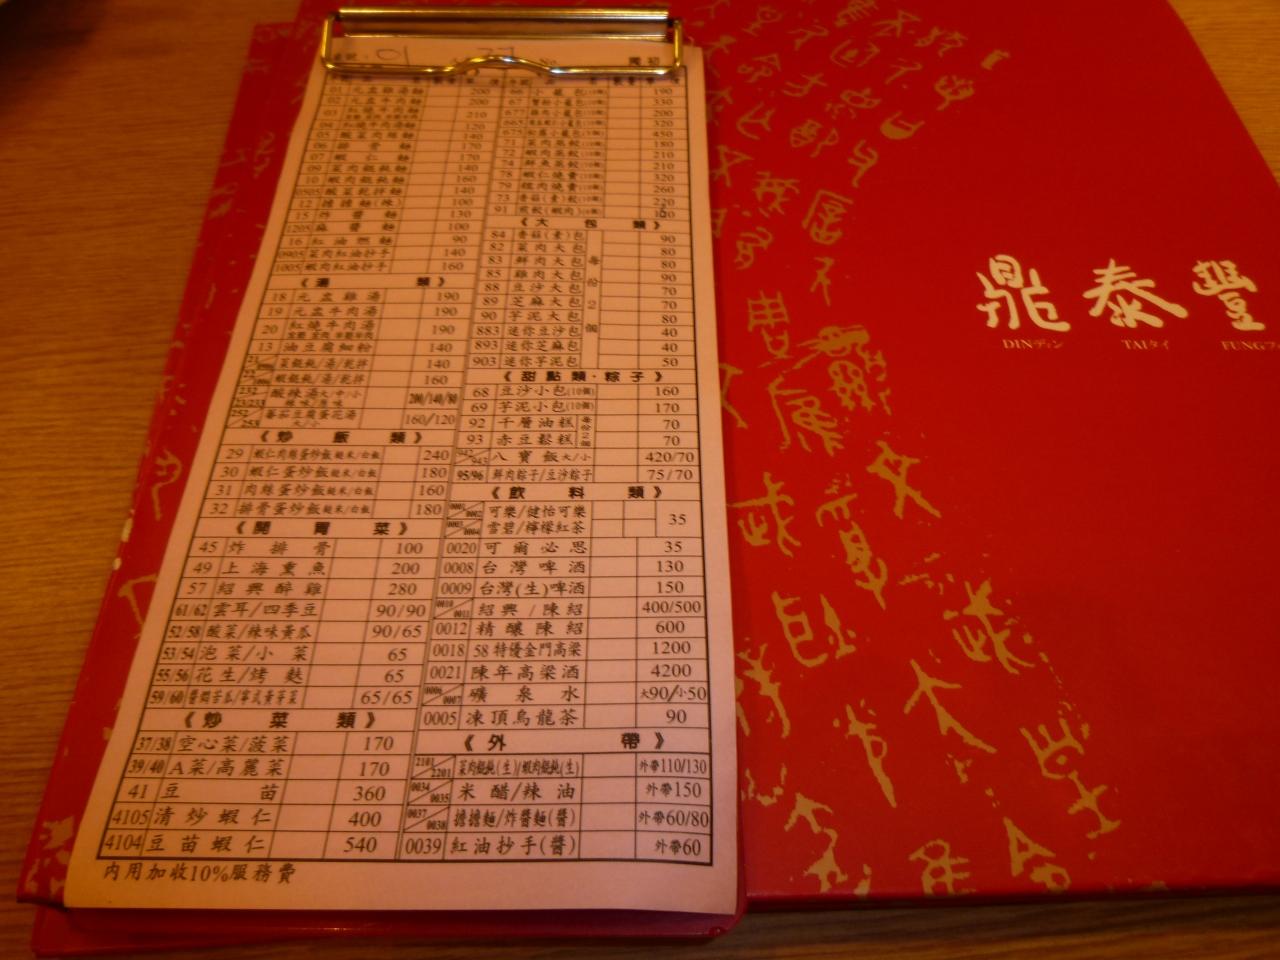 01 元盅雞湯麵 200
02 元盅牛肉麵 200
03 紅燒牛肉麵 210
04 紅燒牛肉湯麵 120
05 酸菜肉絲麵 140
06 排骨麵 170
07 蝦仁麵 170
09 菜肉餛飩麵 140
10 蝦肉餛飩麵 160
0505 酸菜乾拌麵 140
12 擔擔麵(辣) 100
15 炸醬麵 130
1205 麻醬麵 100
16 紅油燃麵 90
0905 菜肉紅油抄手 140
1005 蝦肉紅油抄手 160
《湯類》
18 元盅雞湯 190
19 元盅牛肉湯 190
20 紅燒牛肉湯 190
13 油豆腐細粉 140
菜餛飩/湯/乾拌 140
蝦餛飩/湯/乾拌 160
232 23/233 酸辣湯大/中/小 200/140/80
252/253 蕃茄豆腐蛋花湯 大/小 160/120
《炒飯類》
29 蝦仁肉絲蛋炒飯糙米/白飯 240
30 蝦仁蛋炒飯糙米/白飯 180
31 肉絲蛋炒飯糙米/白飯 160
32 排骨蛋炒飯糙米/白飯 180
《開胃菜》
45 炸排骨 100
49 上海熏魚 200
57 紹興醉雞 280
61/62 雲耳/四季豆 90/90
52/58 酸菜/辣味黃瓜 90/65
53/54 泡菜/小菜 65
55/56 花生/烤麩 65
59/60 醬燜苦瓜/寧式黃芽菜 65/65
《炒菜類》
37/38 空心菜/菠菜 170
39/40 A菜/高麗菜 170
41 豆苗 360
4105 清炒蝦仁 400
4104 豆苗蝦仁 540
66 小籠包(10個) 190
67 蟹粉小籠包(10個) 330
677 雞肉小籠包(10個) 200
665 320
675 松露小籠包(5個) 450
71 菜肉蒸餃(10個) 180
72 蝦肉蒸餃(10個) 210
74 鮮魚蒸餃(10個) 210
78 蝦仁燒賣(10個) 320
79 糯肉燒賣(10個) 260
73 香菇(素)餃(10個) 220
91 煎餃(蝦肉)
《大包類》
每份2個
84 香菇(素)包 90
82 菜肉大包 80
83 鮮肉大包 80
85 雞肉大包 90
88 豆沙大包 70
89 芝麻大包 70
90 芋泥大包 80
883 迷你豆沙包 40
893 迷你芝麻包 40
903 迷你芋泥包 50
《甜點類·粽子》
68 豆沙小包(10個) 160
69 芋泥小包(10個) 170
92 千層油糕 每份2個 70
93 赤豆鬆糕 70
942/943 八寶飯大/小 420/70
95/96 鮮肉粽子/豆沙粽子 75/70
《飲料類》
0001/0002 可樂/健怡可樂 35
0003/0004 雪碧/檸檬紅茶
0020 可爾必思 35
0008 台灣啤酒 130
0009 台灣(生)啤酒 150
0010/0011 紹興/陳紹 400/500
0012 精釀陳紹 600
0018 58特優金門高梁 1200
0021 陳年高梁酒 4200
0006/0007 礦泉水 大90/小50
0005 凍頂烏龍茶 90
《外帶》
2101/2201 菜肉餛飩(生)/蝦肉餛飩(生) 外帶110/130
0034/0035 米醋/辣油 外帶150
0037/0038 擔擔麵/炸醬麵(醬) 外帶60/80
0039 紅油抄手(醬) 外帶60
內用加收10%服務費
鼎泰豐
DINディン TAIタイ FUNGフ